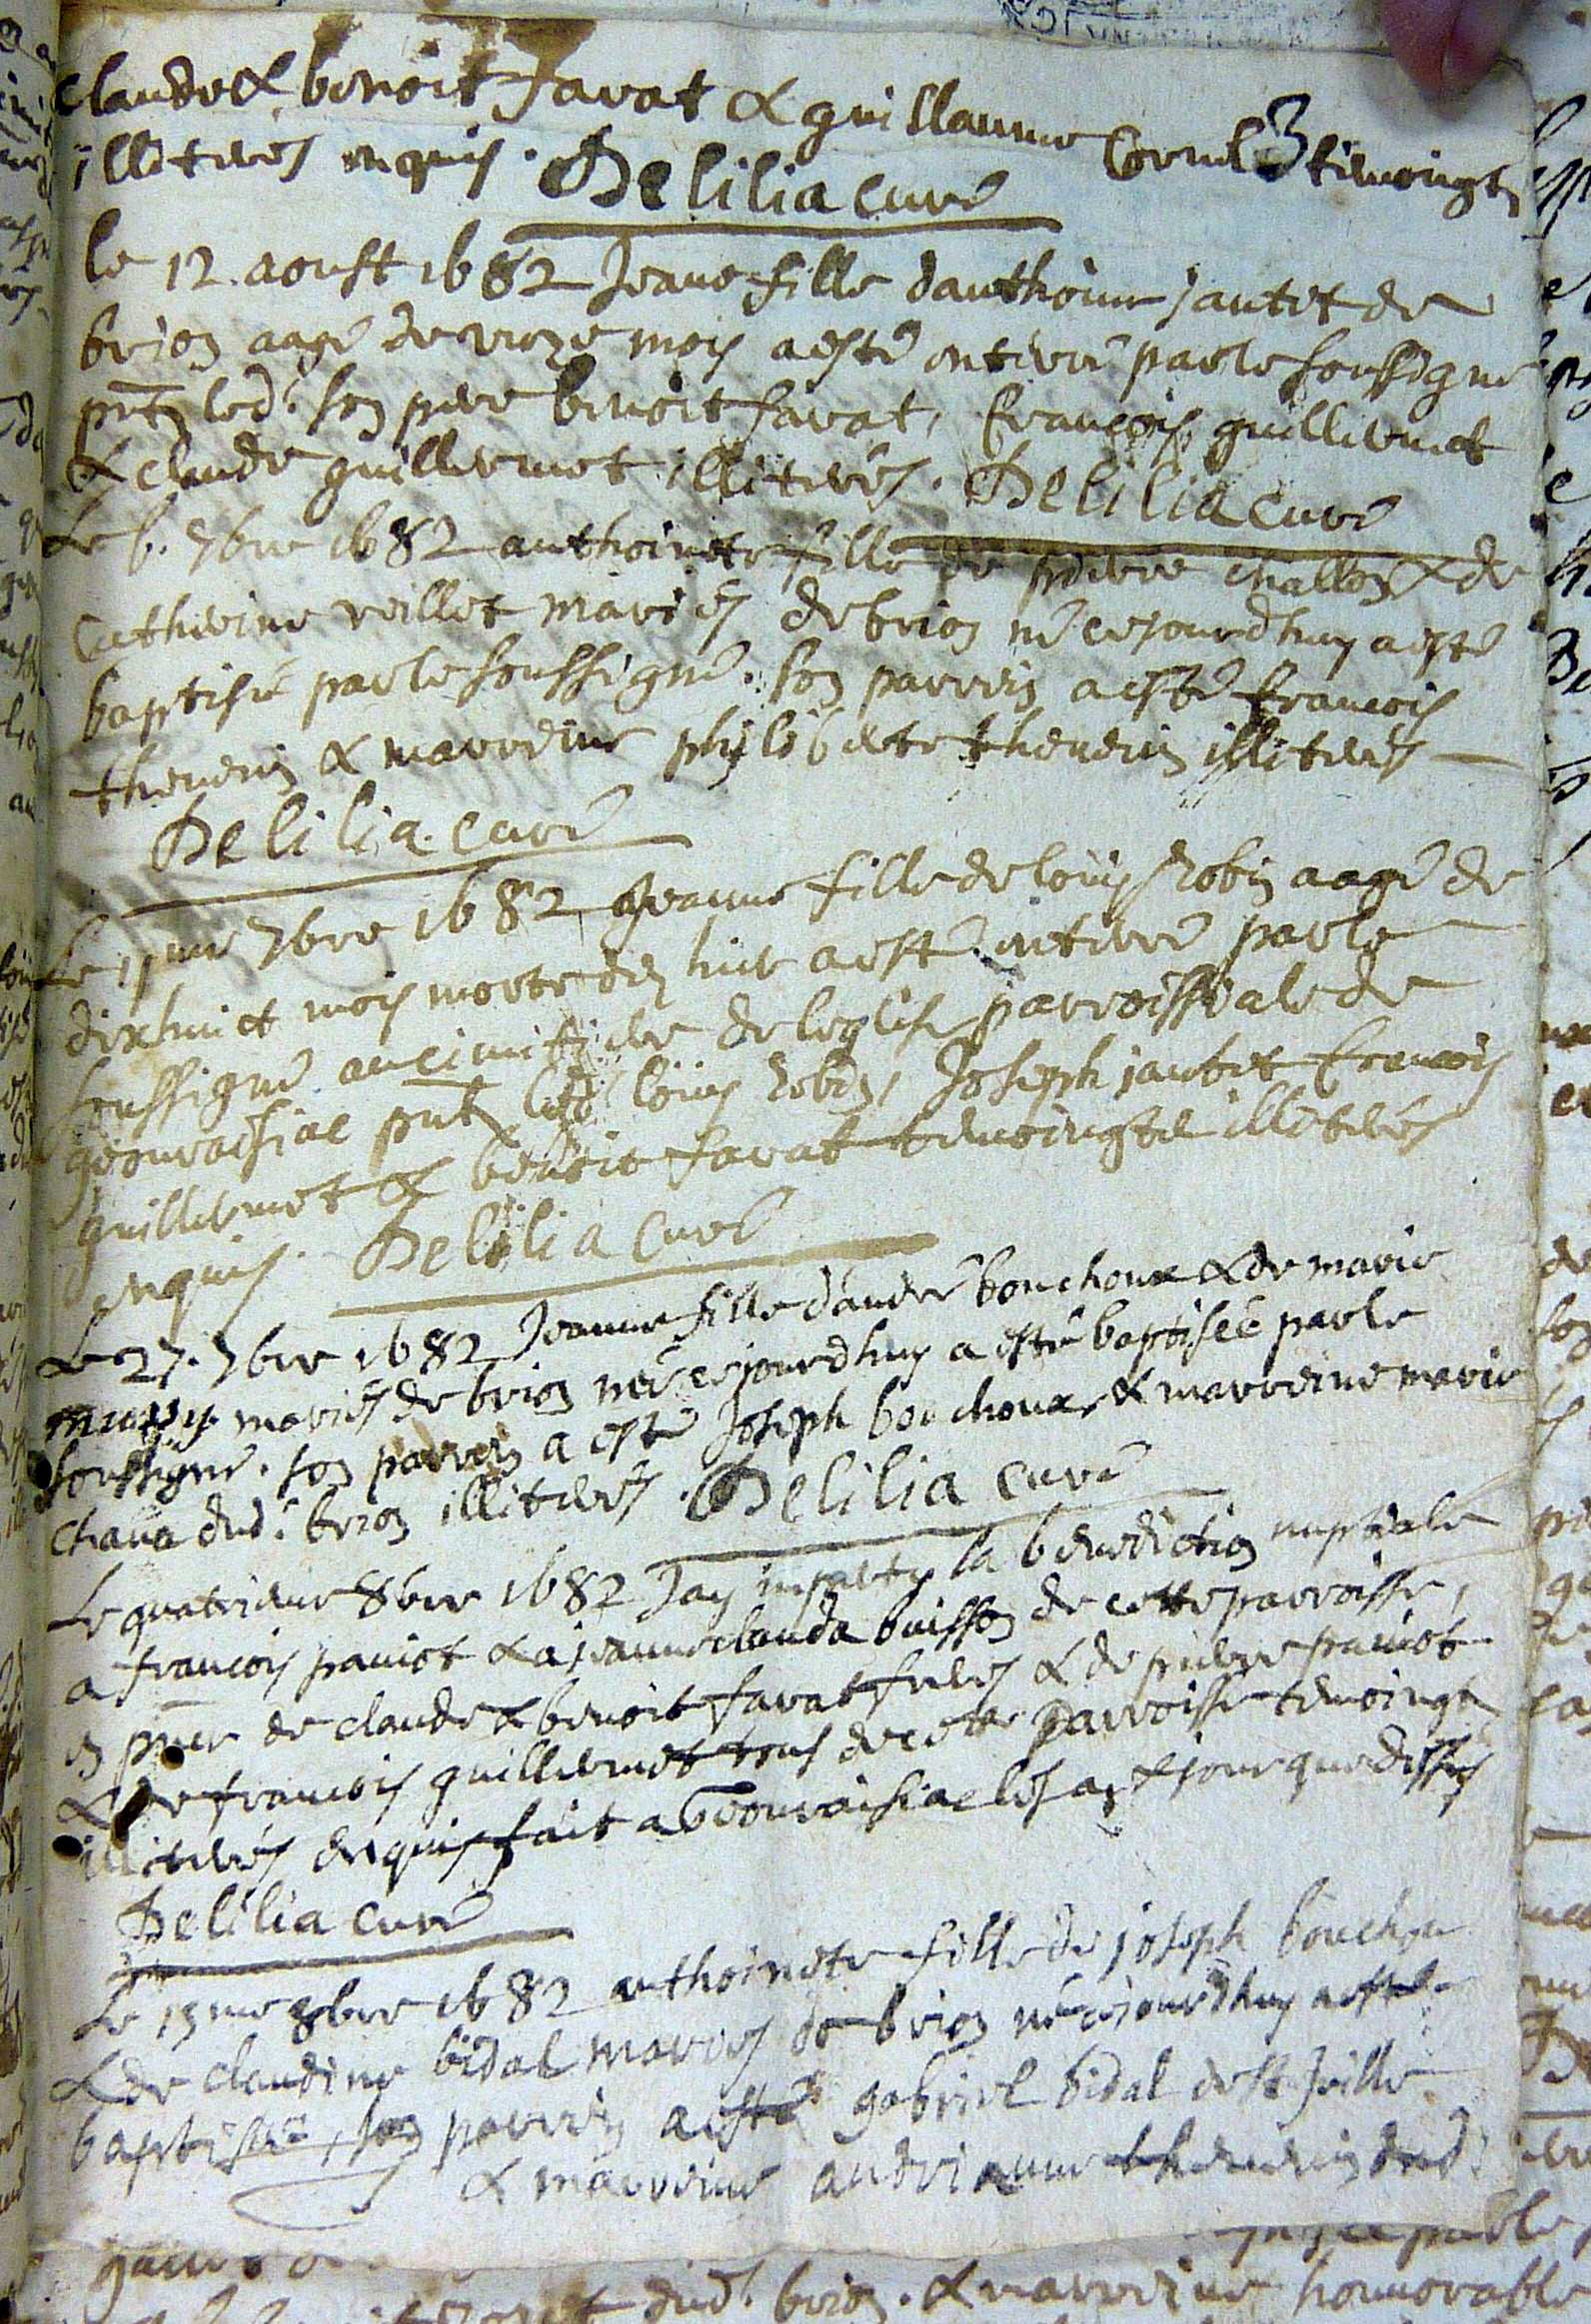 claude & benoit favat & guillaume Cornet temoingtz
illiterés enquis. Delilia curé
le 12. aoust 1682 Jeane fille d'anthoine jantet de
brion aagé de onze mois a esté enterré par le soussigné
pntz led. son pere benoit favat, françois guillermet
& claude guillermet illiterés. Delilia curé
Le 6. 7bre 1682 anthoinete fille de pierre challon & de
Catherine reillet mariés de brion né cejourdhuy a esté
baptisé par le soussigné. son parrein a esté françois
thevenin & marreine philiberte thevenin illiterés
Delilia curé
Le 11me 7bre 1682 Jeanne fille de loüys Robin aagé de
dixhuict mois morte des hier a esté enterré par le
soussigné au cimitiere de leglise parroissiale de
geouraissiac pntz led loüys Robin, Joseph jantet françois
guillermet & benoit favat temoingtz illiterés
enquis. Delilia Curé
Le 27. 7bre 1682 Jeanne fille d'andré bouchoux & de marie
mariés de brion née cejourdhuy a esté baptisée par le
soussigné. son parrein a esté Joseph bouchoux & marreine marie
chana dud. brion illiterés. Delilia curé
Le quatrieme 8bre 1682 Jay inparty la benediction nuptiale
a françois paniot & a jeanne clauda buisson de cette parroisse,
en pnce de claude & benoit favat freres & de pierre paniot
& de françois guillermet tous de cette parroisse temoingtz
illiterés enquis fait a Geouraissiac les an & jour que dessus
Delilia curé
Le 19me 8bre 1682 anthoinete fille de joseph bouchon
& de claudine bidal mariés de brion né cejourdhuy a esté
baptisé, son parrein a esté gabriel bidal de st
& marreine andrianne thevenin dud.
dud. brion. & marreine honnorable